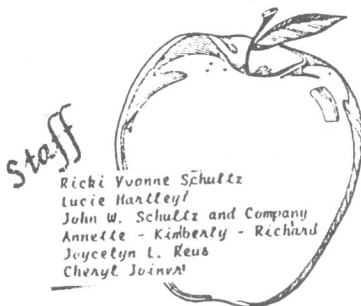 Staff
Ricki Yvonne Schultz
Lucie Hartley
John W. Schultz and Company
Annette - Kimberly - Richard
Joycelyn L. Reus
Cheryl Joiner